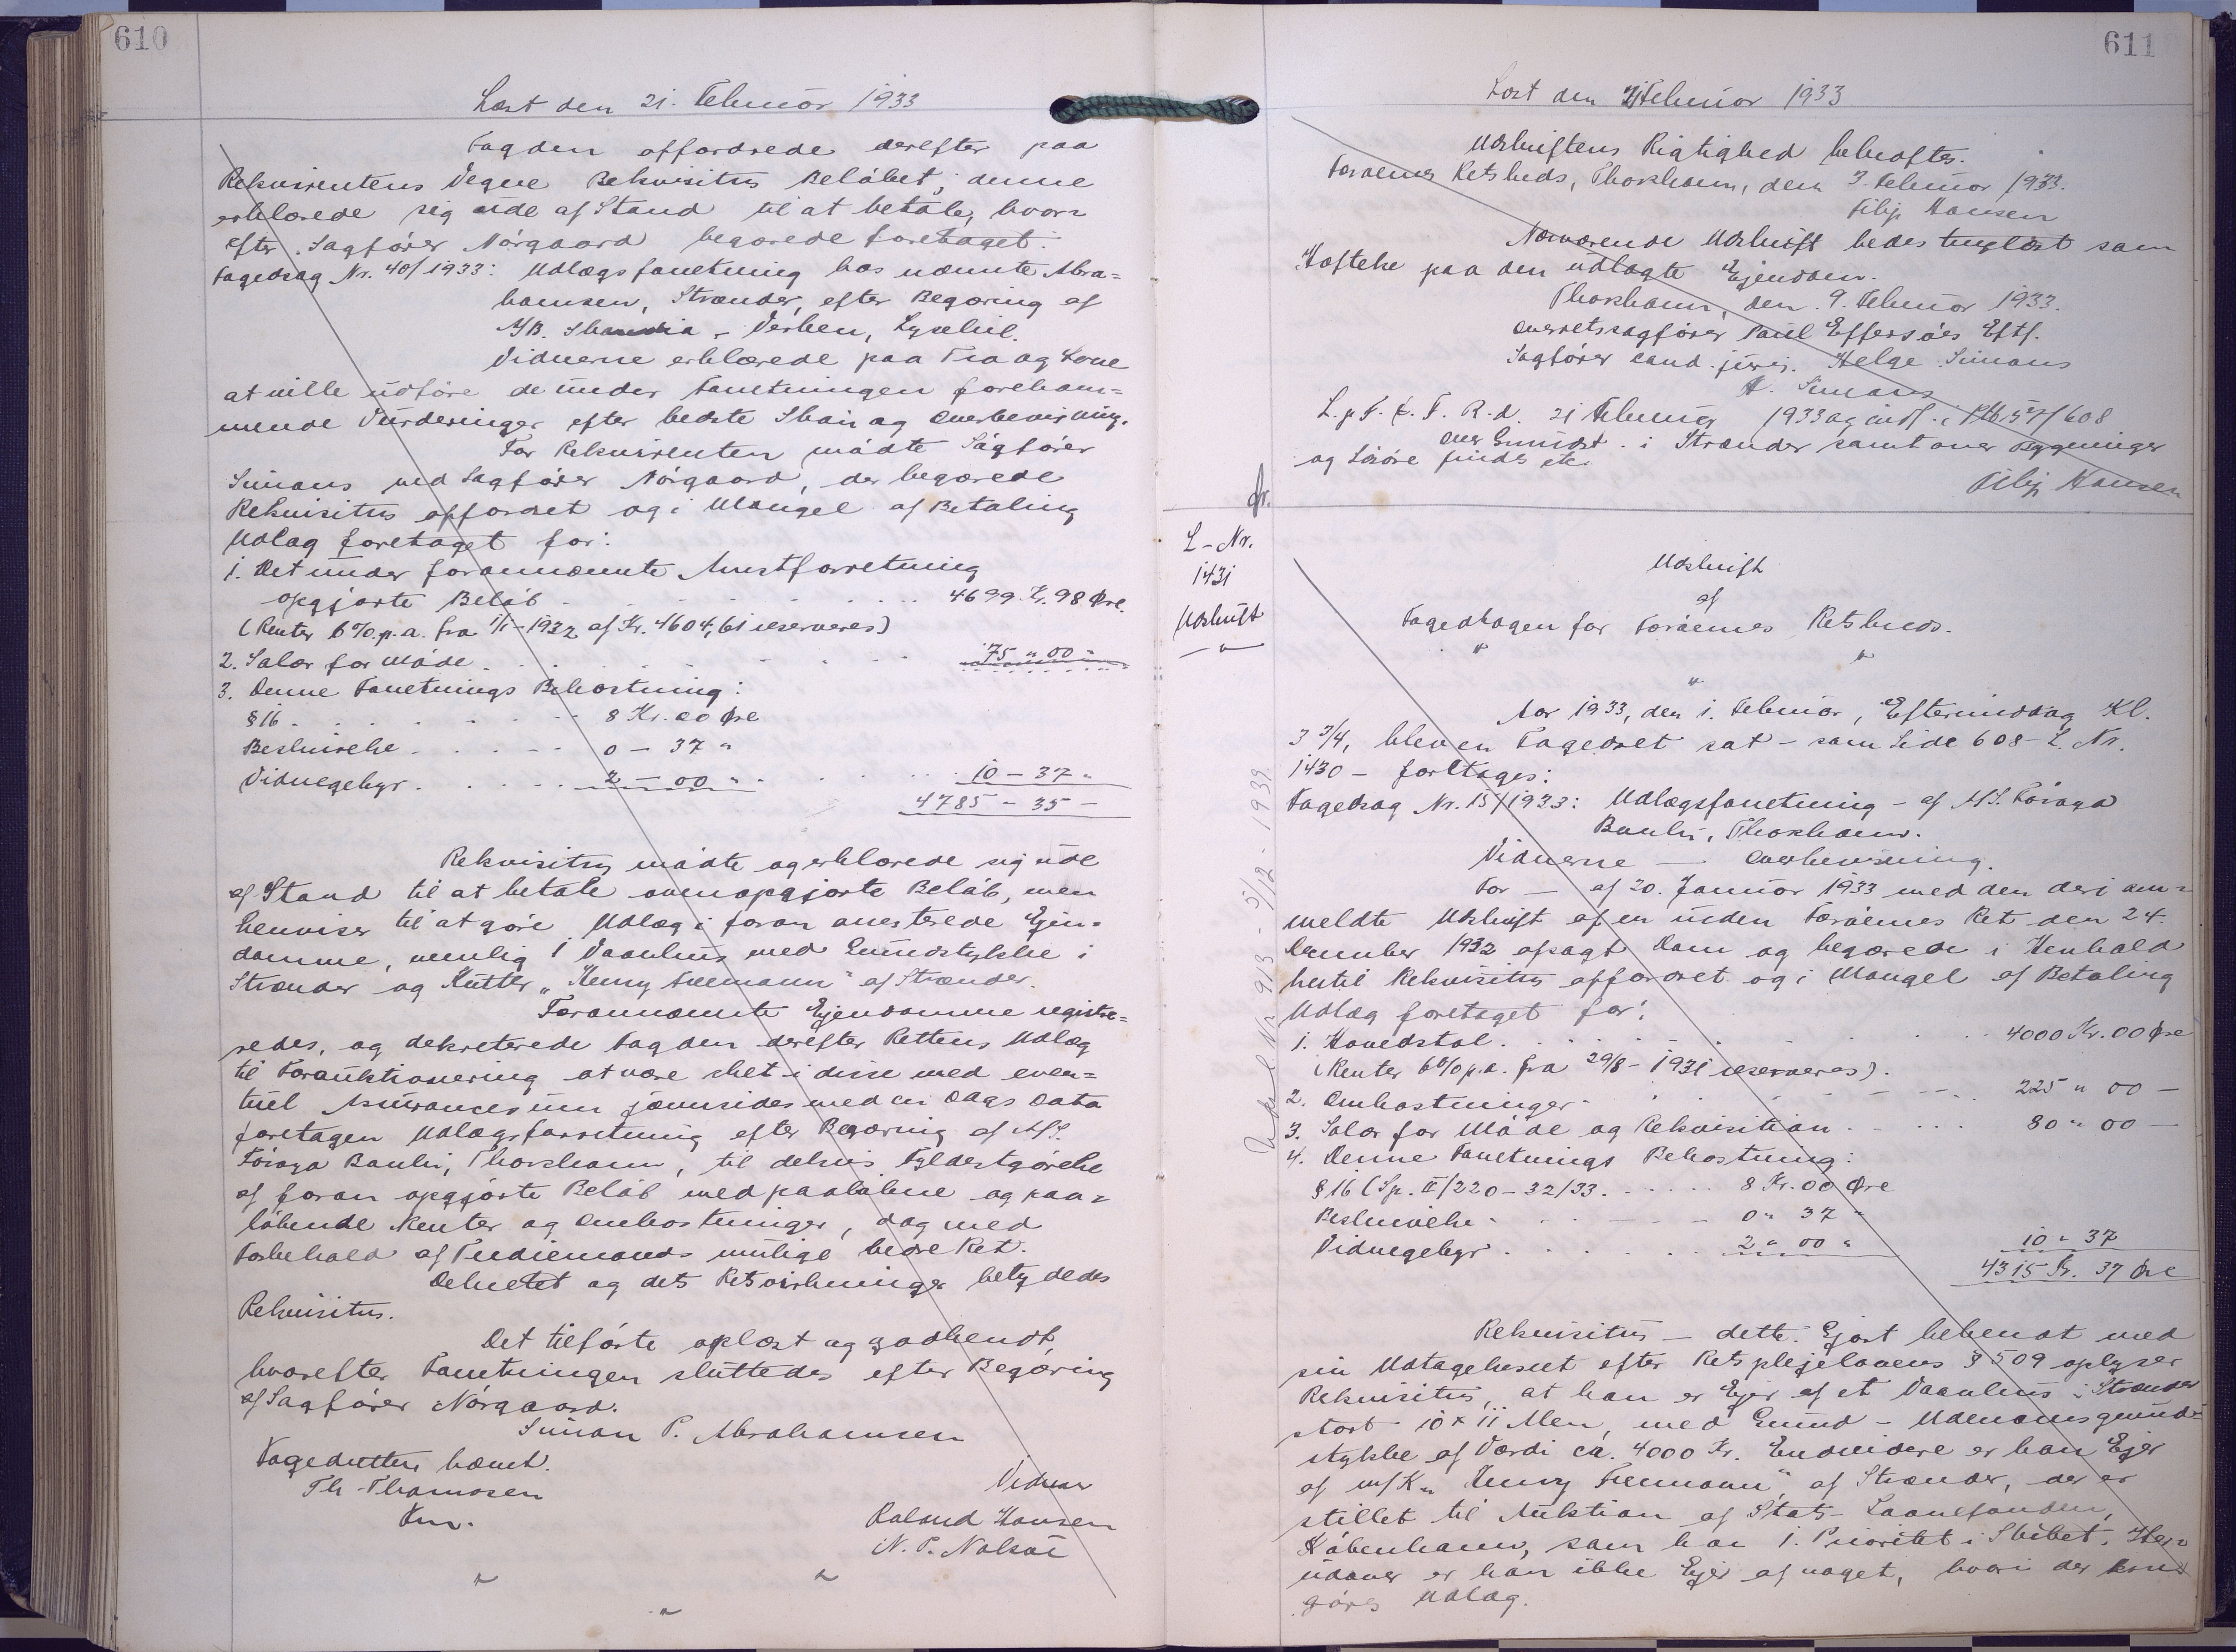 610
Læst den 21. Februar 1933
Fogden opfordrede derefter paa
Rekvirentens Vegne Rekvisitus Beløbet; denne
erklærede sig ude af Stand til at betale, hvor=
efter Sagfører Nørgaard begærede foretaget:
Fogedsag Nr. 40/1933: Udlægsforretning hos nævnte Abra=
hamsen, Strænder, efter Begæring af
A/B. Skandia-Verken, Lysekil.
Vidnerne erklærede paa Tro og Love
at ville udføre de under Forretningen forekom=
mende Vurderinger efter bedste Skøn og Overbevisning.
For Rekvirenten mødte Sagfører
Simons ved Sagfører Nørgaard, der begærede
Rekvisitus opfordret og i Mangel af Betaling
Udlæg foretaget for:
1. Det under forannævnte Arrestforretning
opgjorte Beløb . . . . 4699 Kr. 98 Øre.
(Renter 6% p.a. fra 1/1-1932 af Kr. 4604,61 reserveres)
2. Salær for Møde . . . . 75 " 00 "
3. Denne Forretnings Bekostning:
§ 16 . . . . 8 Kr. 00 Øre
Beskrivelse . . . . 0 - 37 "
Vidnegebyr . . . . 2 - 00 " . . . . 10 - 37 "
4785 - 35 -
Rekvisitus mødte og erklærede sig ude
af Stand til at betale ovenopgjorte Beløb, men
henviser til at gøre Udlæg i foran arresterede Ejen=
domme, nemlig 1 Vaanhus med Grundstykke i
Strænder og Kutter „Henry Freemann" af Strænder.
Forannævnte Ejendomme registre=
redes, og dekreterede Fogden derefter Rettens Udlæg
til Forauktionering at være sket i disse med even=
tuel Assurancesum jævnsides med en Dags Dato
foretagen Udlægsforretning efter Begæring af A/S.
Føroya Banki, Thorshavn, til delvis Fyldestgørelse
af foran opgjorte Beløb med paaløbne og paa=
løbende Renter og Omkostninger, dog med
Forbehold af Trediemands mulige bedre Ret.
Dekretet og dets Retsvirkninger betydedes
Rekvisitus.
Det tilførte oplæst og godkendt,
hvorefter Forretningen sluttedes efter Begæring
af Sagfører Nørgaard.
Simon P. Abrahamsen
Fogedretten hævet.
Th. Thomasen
Fm.
Vidner
Roland Hansen
N. P. Nolsøe
611
Læst den 21 Februar 1933
Udskriftens Rigtighed bekræftes.
Færøernes Retskreds, Thorshavn, den 3. Februar 1933.
Filip Hansen
Nærværende Udskrift bedes tinglæst som
Hæftelse paa den udlagte Ejendom.
Thorshavn, den 9. Februar 1933.
Overretssagfører Poul Effersøes Eftf.
Sagfører cand. juris. Helge Simons
H. Simons
L. p. F. R-d. 21 Februar 1933 og indf. i Ptb. 57/608
over Grundst. i Strænder samt over Bygninger
og Løsøre findes etc.
Filip Hansen
fr.
L-Nr.
1431
Udskrift
Udskrift
af
Fogedbogen for Færøernes Retskreds.
Aar 1933, den 1. Februar, Eftermiddag Kl.
3 3/4, blev en Fogedret sat - som Side 608 - L. Nr.
1430 - foretages:
Fogedsag Nr. 15/1933: Udlægsforretning - af A/S. Føroya
Banki, Thorshavn.
Vidnerne — Overbevisning.
For — af 20. Januar 1933 med den deri an=
meldte Udskrift af en inden Færøernes Ret den 24.
December 1932 afsagt Dom og begærede i Henhold
hertil Rekvisitus opfordret og i Mangel af Betaling
Udlæg foretaget for:
1. Hovedstol . . . . 4000 Kr. 00 Øre
(Renter 6% p.a. fra 29/8-1931 reserveres).
2. Omkostninger . . . . 225 " 00 —
3. Salær for Møde og Rekvisition . . . . 80 " 00 —
4. Denne Forretnings Bekostning:
§ 16 (Sp. II/220-32/33 . . . . 8 Kr. 00 Øre
Beskrivelse . . . . 0 " 37 "
Vidnegebyr . . . . 2 " 00 " 10 " 37
4315 Kr. 37 Øre
Rekvisitus — dette. Gjort bekendt med
sin Udtagelsesret efter Retsplejelovens § 509 oplyser
Rekvisitus, at han er Ejer af et Vaanhus i Strænder
stort 10 x 11 Alen, med Grund - Udenomsgrund=
stykke af Værdi ca. 4000 Kr. Endvidere er han Ejer
af m/K „Henry Freemann" af Strænder, der er
stillet til Auktion af Stats-Laanefonden,
København, som har 1. Prioritet i Skibet. Her=
udover er han ikke Ejer af noget, hvori der kan
gøres Udlæg.
913 - 5/12 - 1939